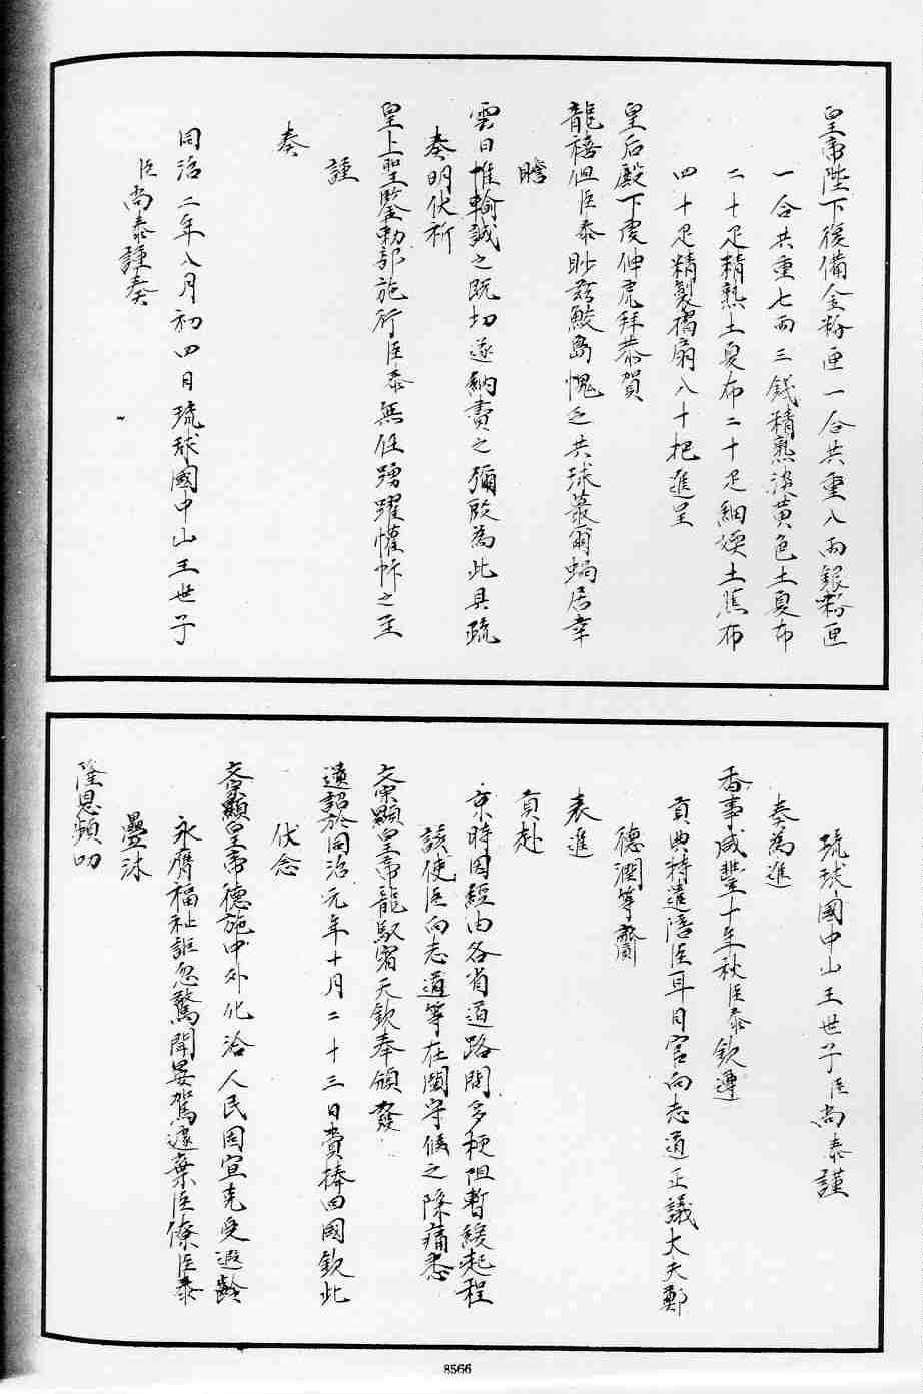 皇帝陛下復備金粉匣一合共重八兩銀粉匣
一合共重七兩三錢精熟淡黃色土夏布
二十疋精熟土夏布二十疋細嫩土蕉布
四十疋精製摺扇八十把進呈
皇后殿下虔伸虎拜恭賀
龍禧但臣泰眇茲鮫島愧乏共球蕞爾蝸居幸
瞻
雲日惟輸誠之既切遂納賮之彌殷為此具疏
奏明伏祈
皇上聖鑒勅部施行臣泰無任踴躍懽忭之至
謹
奏
同治二年八月初四日琉球國中山王世子
臣尚泰謹奏
琉球國中山王世子臣尚泰謹
奏為進
香事咸豐十年秋臣泰欽遵
貢典特遣陪臣耳目官向志道正議大夫鄭
德潤等齎
表進
貢赴
京時因經由各省道路間多梗阻暫緩起程
該使臣向志道等在閩守候之際痛悉
文宗顯皇帝龍馭賓天欽奉頒發
遺詔於同治元年十月二十三日賫捧回國欽此
伏念
文宗顯皇帝德施中外化洽人民固宜克受遐齡
永膺福祉詎忽驚聞晏駕遽棄臣僚臣泰
疊沐
隆恩頻叨
8566